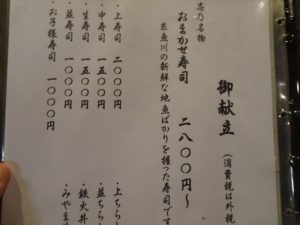 御献立 (消費税は外税
志乃名物
おまかせ寿司 二八〇〇円〜
糸魚川の新鮮な地魚ばかりを握った寿司です
・上寿司 二〇〇〇円
・中寿司 一五〇〇円
・生寿司 一五〇〇円
・並寿司 一〇〇〇円
・お子様寿司 一〇〇〇円
・上ちらし
・並ちらし
・鉄火丼
・みやま